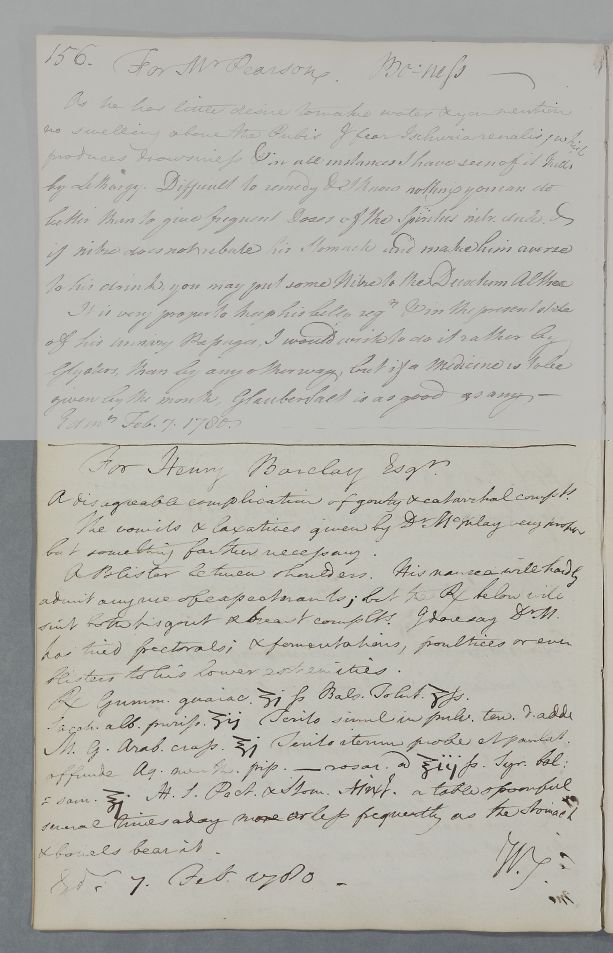 156. For Mr Pearson. Bo-ness
As he has little desire to make water & you mention
no swelling above the Pubis I fear Ischuria renalis, which
produces drowsiness & in all instances I have seen of it kills
by Lethargy. Difficult to remedy & I know nothing you can do
better than to give frequent Doses of the Spiritus nitr. dulc. &
if nitre does not rebate his Stomach and make him averse
to his drink, you may put some Nitre to the Decoctum Althea
It is very proper to keep his belly reg. & in the present state
of his urinary Passages, I would wish to do it rather by
Glysters, than by any other way, but if a Medicine is to be
given by the mouth, Glauber salt is as good as any —
Edinr Feb. 7. 1780.
For Henry Barclay Esqr.
A disagreable complication of gouty & catarrhal compts.
The vomits & laxatives given by Dr very proper
but something farther necessary.
A Blister between shoulders. His nausea will hardly
admit any use of expectorants; but the Rx below will
suit both his gout & breast compts. I dare say Dr M.
has tried pectorals; & fomentations, poultices or even
blisters to his lower extremities.
Rx Gumm. guaiac. ʒj ss Bals. Tolut. ʒss.
Sacch. alb. puriss. ʒij Terito simul in pulv. ten. & adde
M. G. Arab. crass. ʒj Terito iterum probe et paulat.
offunde Aq. menth. pip. — rosar. a ʒiij ss. Syr. bal:
= sam. ʒj M. S. Pect. & Stom. Mixt. a table spoonful
several times a day more or less frequently as the Stomach
& bowels bear it.
Edr. 7. Feb. 1780 -
W.C.